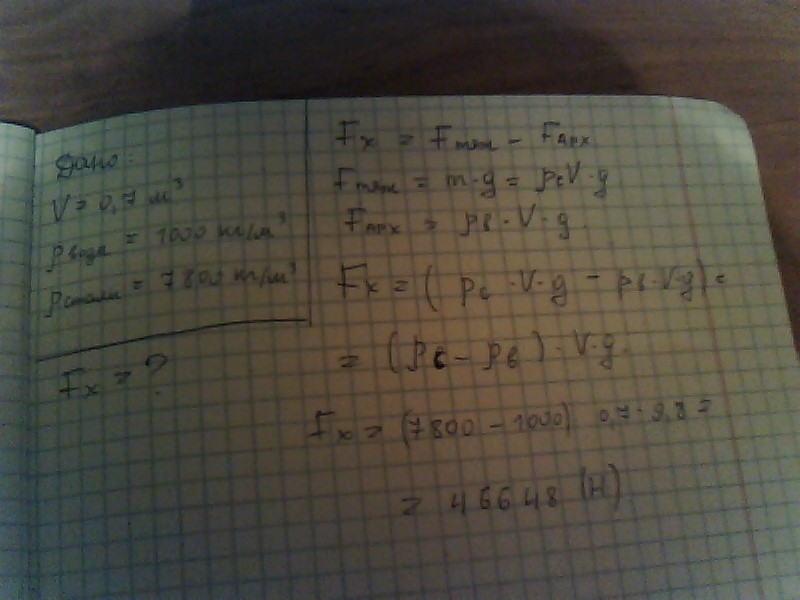 Дано:
V = 0,7 м³
ρводы = 1000 кг/м³
ρстали = 7800 кг/м³
Fx = ?
Fx = Fтяж - FАрх
Fтяж = m·g = ρсV·g
FАрх = ρв·V·g.
Fx = (ρс·V·g - ρв·V·g) =
= (ρс - ρв)·V·g.
Fx = (7800 - 1000) 0,7·9,8 =
= 46648 (Н)